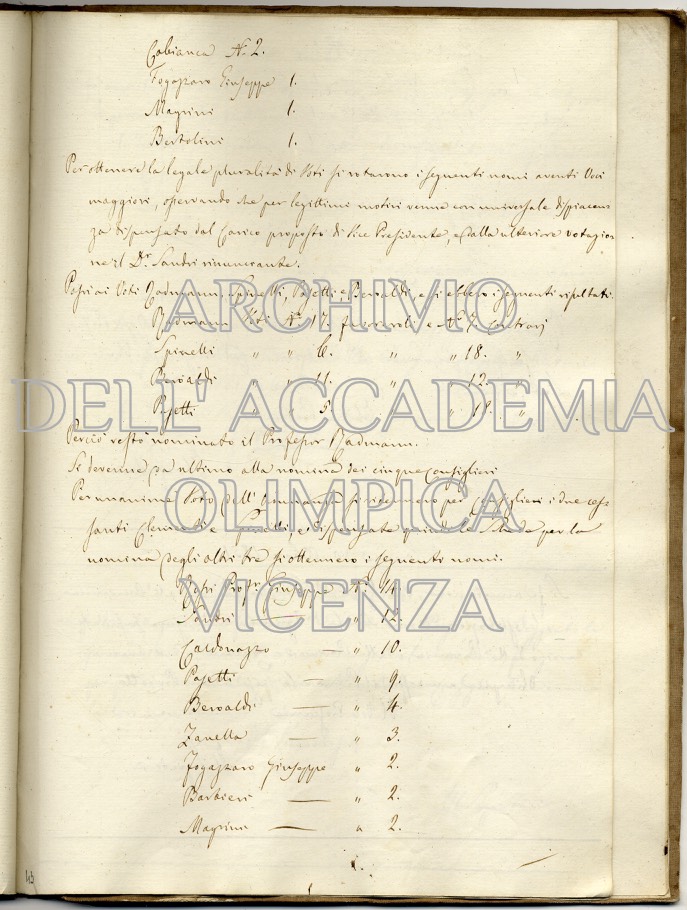 Cabianca N. 2.
Fogazzaro Giuseppe 1.
Magrini 1.
Bertolini 1.
Per ottenere la legale pluralità di Voti si votarono i seguenti nomi aventi Voci
maggiori, osservando che per legittimi motivi venne con universale dispiacen-
za dispensato dal Carico proposto di Vice Presidente, e dalla ulteriore votazio-
ne il Dr. Sandri rinunciante.
Posti ai Voti Spinelli, Pasetti e Beroaldi, e si ebbero i seguenti risultati.
Voti N. 17. favorevoli e N. 7. contrarj
Spinelli " " 6. " " 18. "
Beroaldi " " 11. " " 12. "
Pasetti " 5. " 18. "
Perciò restò nominato il Professor
Si devenne da ultimo alla nomina dei cinque Consiglieri
Per unanime Voto dell' si ritennero per Consiglieri i due ces-
santi Clementi e e dispensate quindi le Schede per la
nomina degli altri tre si ottennero i seguenti nomi.
Profr. Giuseppe N. 14.
Sandri — " 12.
Caldonazzo — " 10.
Pasetti — " 9.
Beroaldi — " 4.
Zanella — " 3.
Fogazzaro Giuseppe " 2.
Barbieri — " 2.
Magrini — " 2.
ARCHIVIO
DELL' ACCADEMIA
OLIMPICA
VICENZA